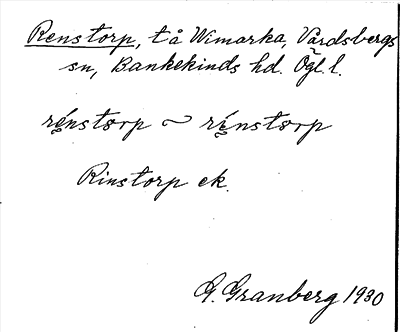 Renstorp, tå Wimarka, Vårdsbergs
sn, Bankekinds hd. Ögl. l.
rénstorp ~ rénstorp
Rinstorp ek.
G. Granberg 1930